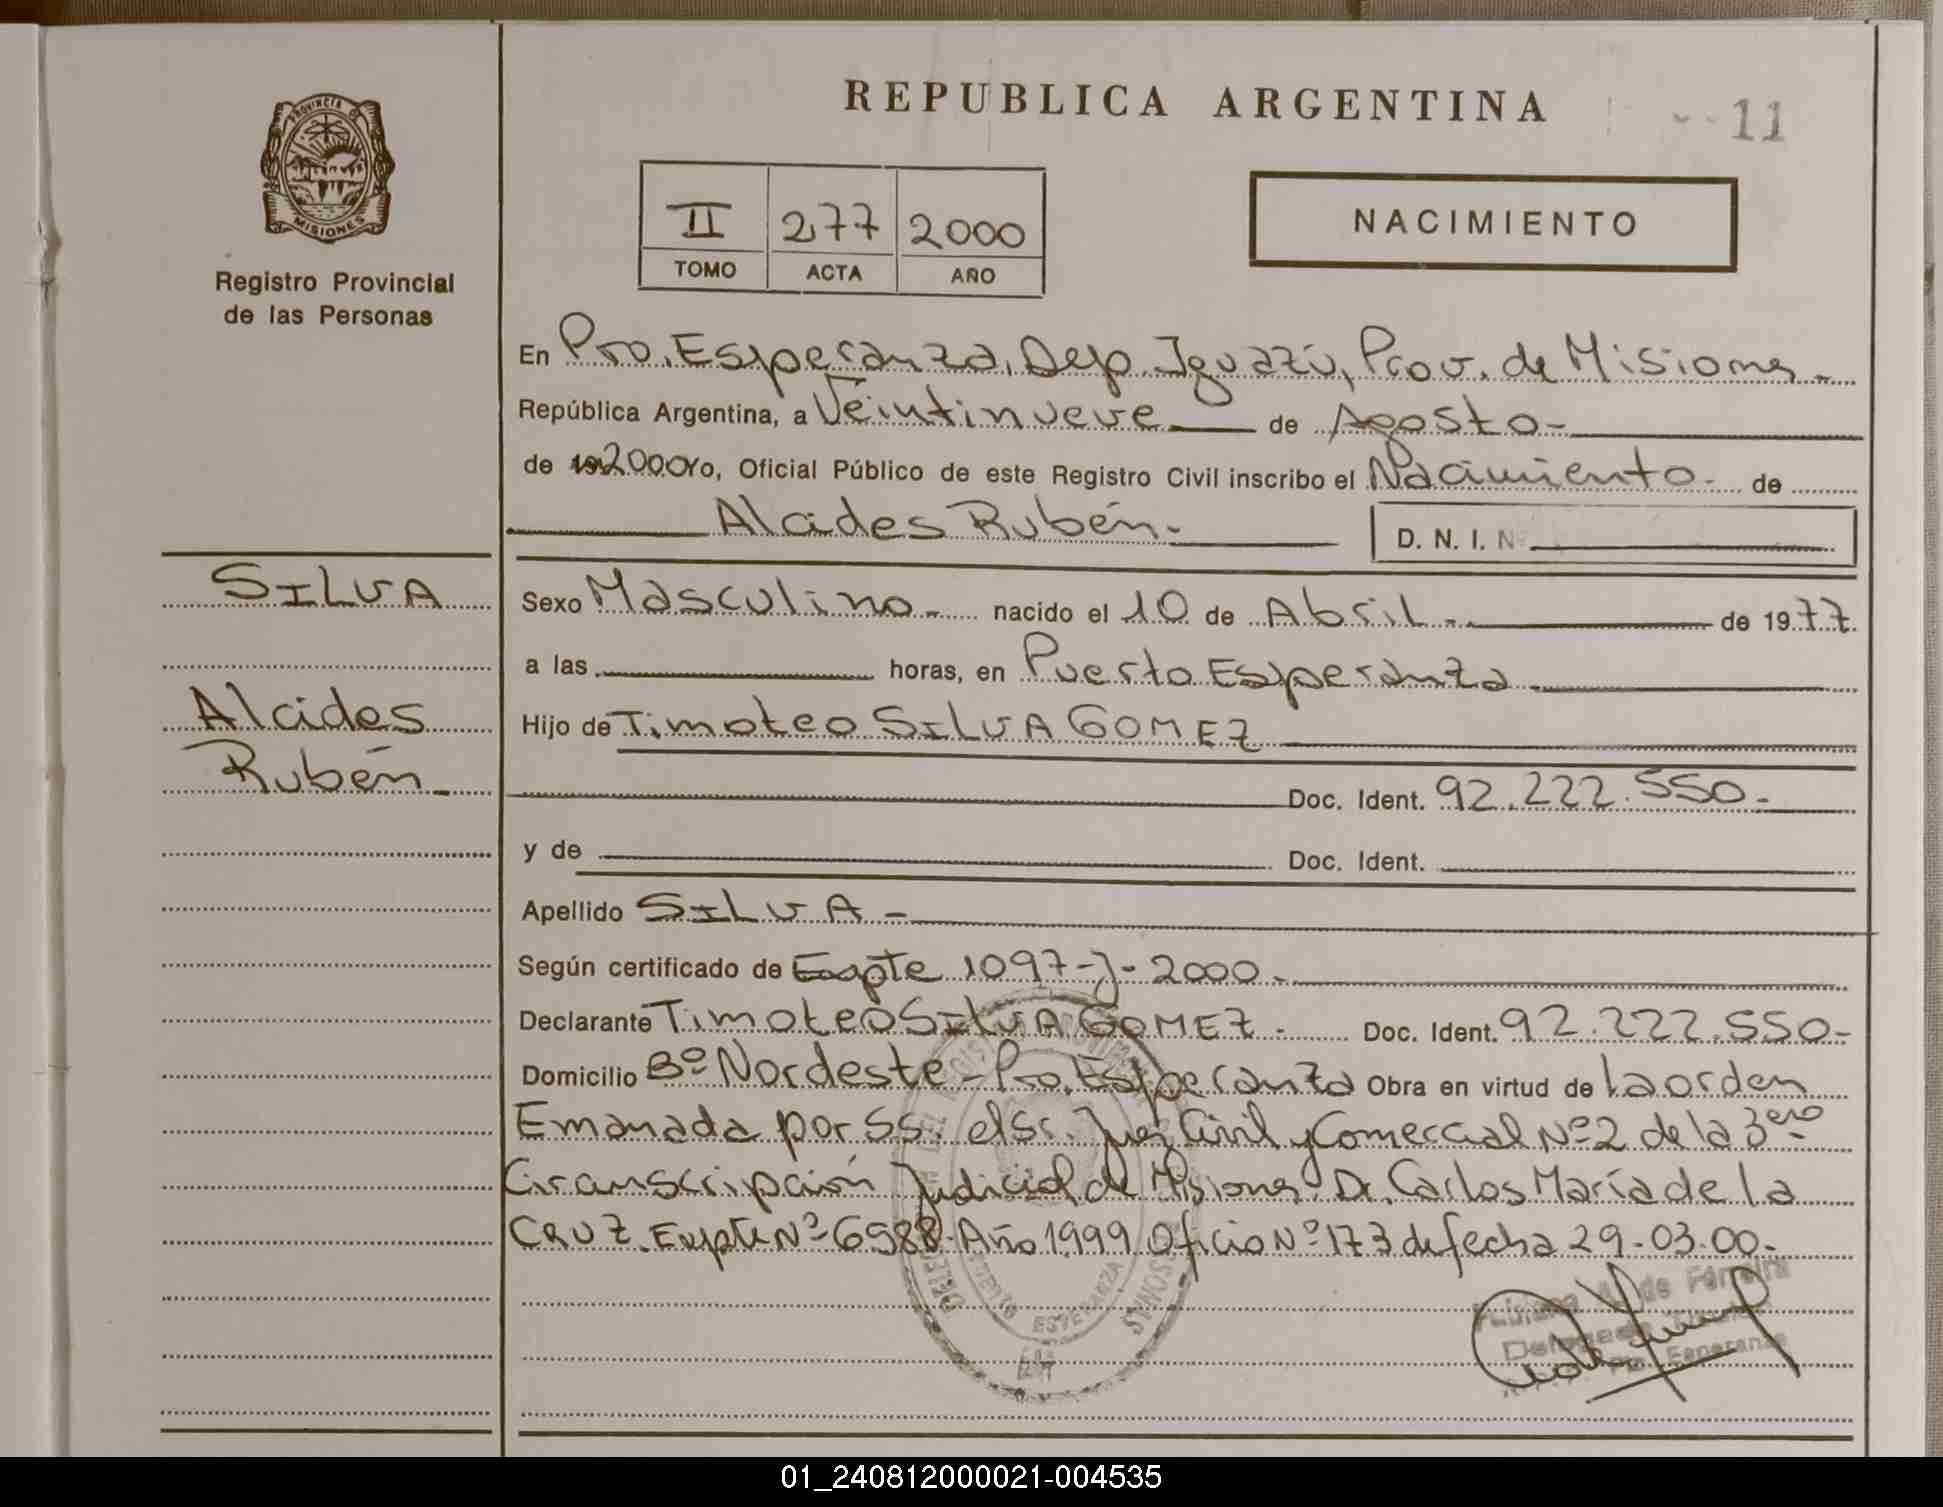 REPUBLICA ARGENTINA
11
PROVINCIA DE
MISIONES
Registro Provincial
de las Personas
II 277 2000
TOMO ACTA AÑO
NACIMIENTO
En Pto. Esperanza, Dep. Iguazú, Prov. de Misiones -
República Argentina, a Veintinueve de Agosto -
de 2000 Yo, Oficial Público de este Registro Civil inscribo el Nacimiento - de
Alcides Rubén -
D. N. I. Nº
SILVA
Alcides
Rubén -
Sexo Masculino - nacido el 10 de Abril - de 1977.
a las horas, en Puerto Esperanza
Hijo de Timoteo SILVA GOMEZ
Doc. Ident. 92.222.550 -
y de Doc. Ident.
Apellido SILVA -
Según certificado de Expte 1097-J-2000 -
Declarante Timoteo SILVA GOMEZ - Doc. Ident. 92.222.550 -
Domicilio Bº Nordeste - Pto. Esperanza Obra en virtud de la orden
Emanada por SS. el Sr. Juez Civil y Comercial Nº 2 de la 3ero
Circunscripción Judicial de Misiones Dr. Carlos María de la
CRUZ. Expte Nº 6988 - Año 1999 Oficio Nº 173 de fecha 29-03-00 -
ESPERANZA
de Ferreira
Delegada Titular
Pto. Esperanza
01_240812000021-004535